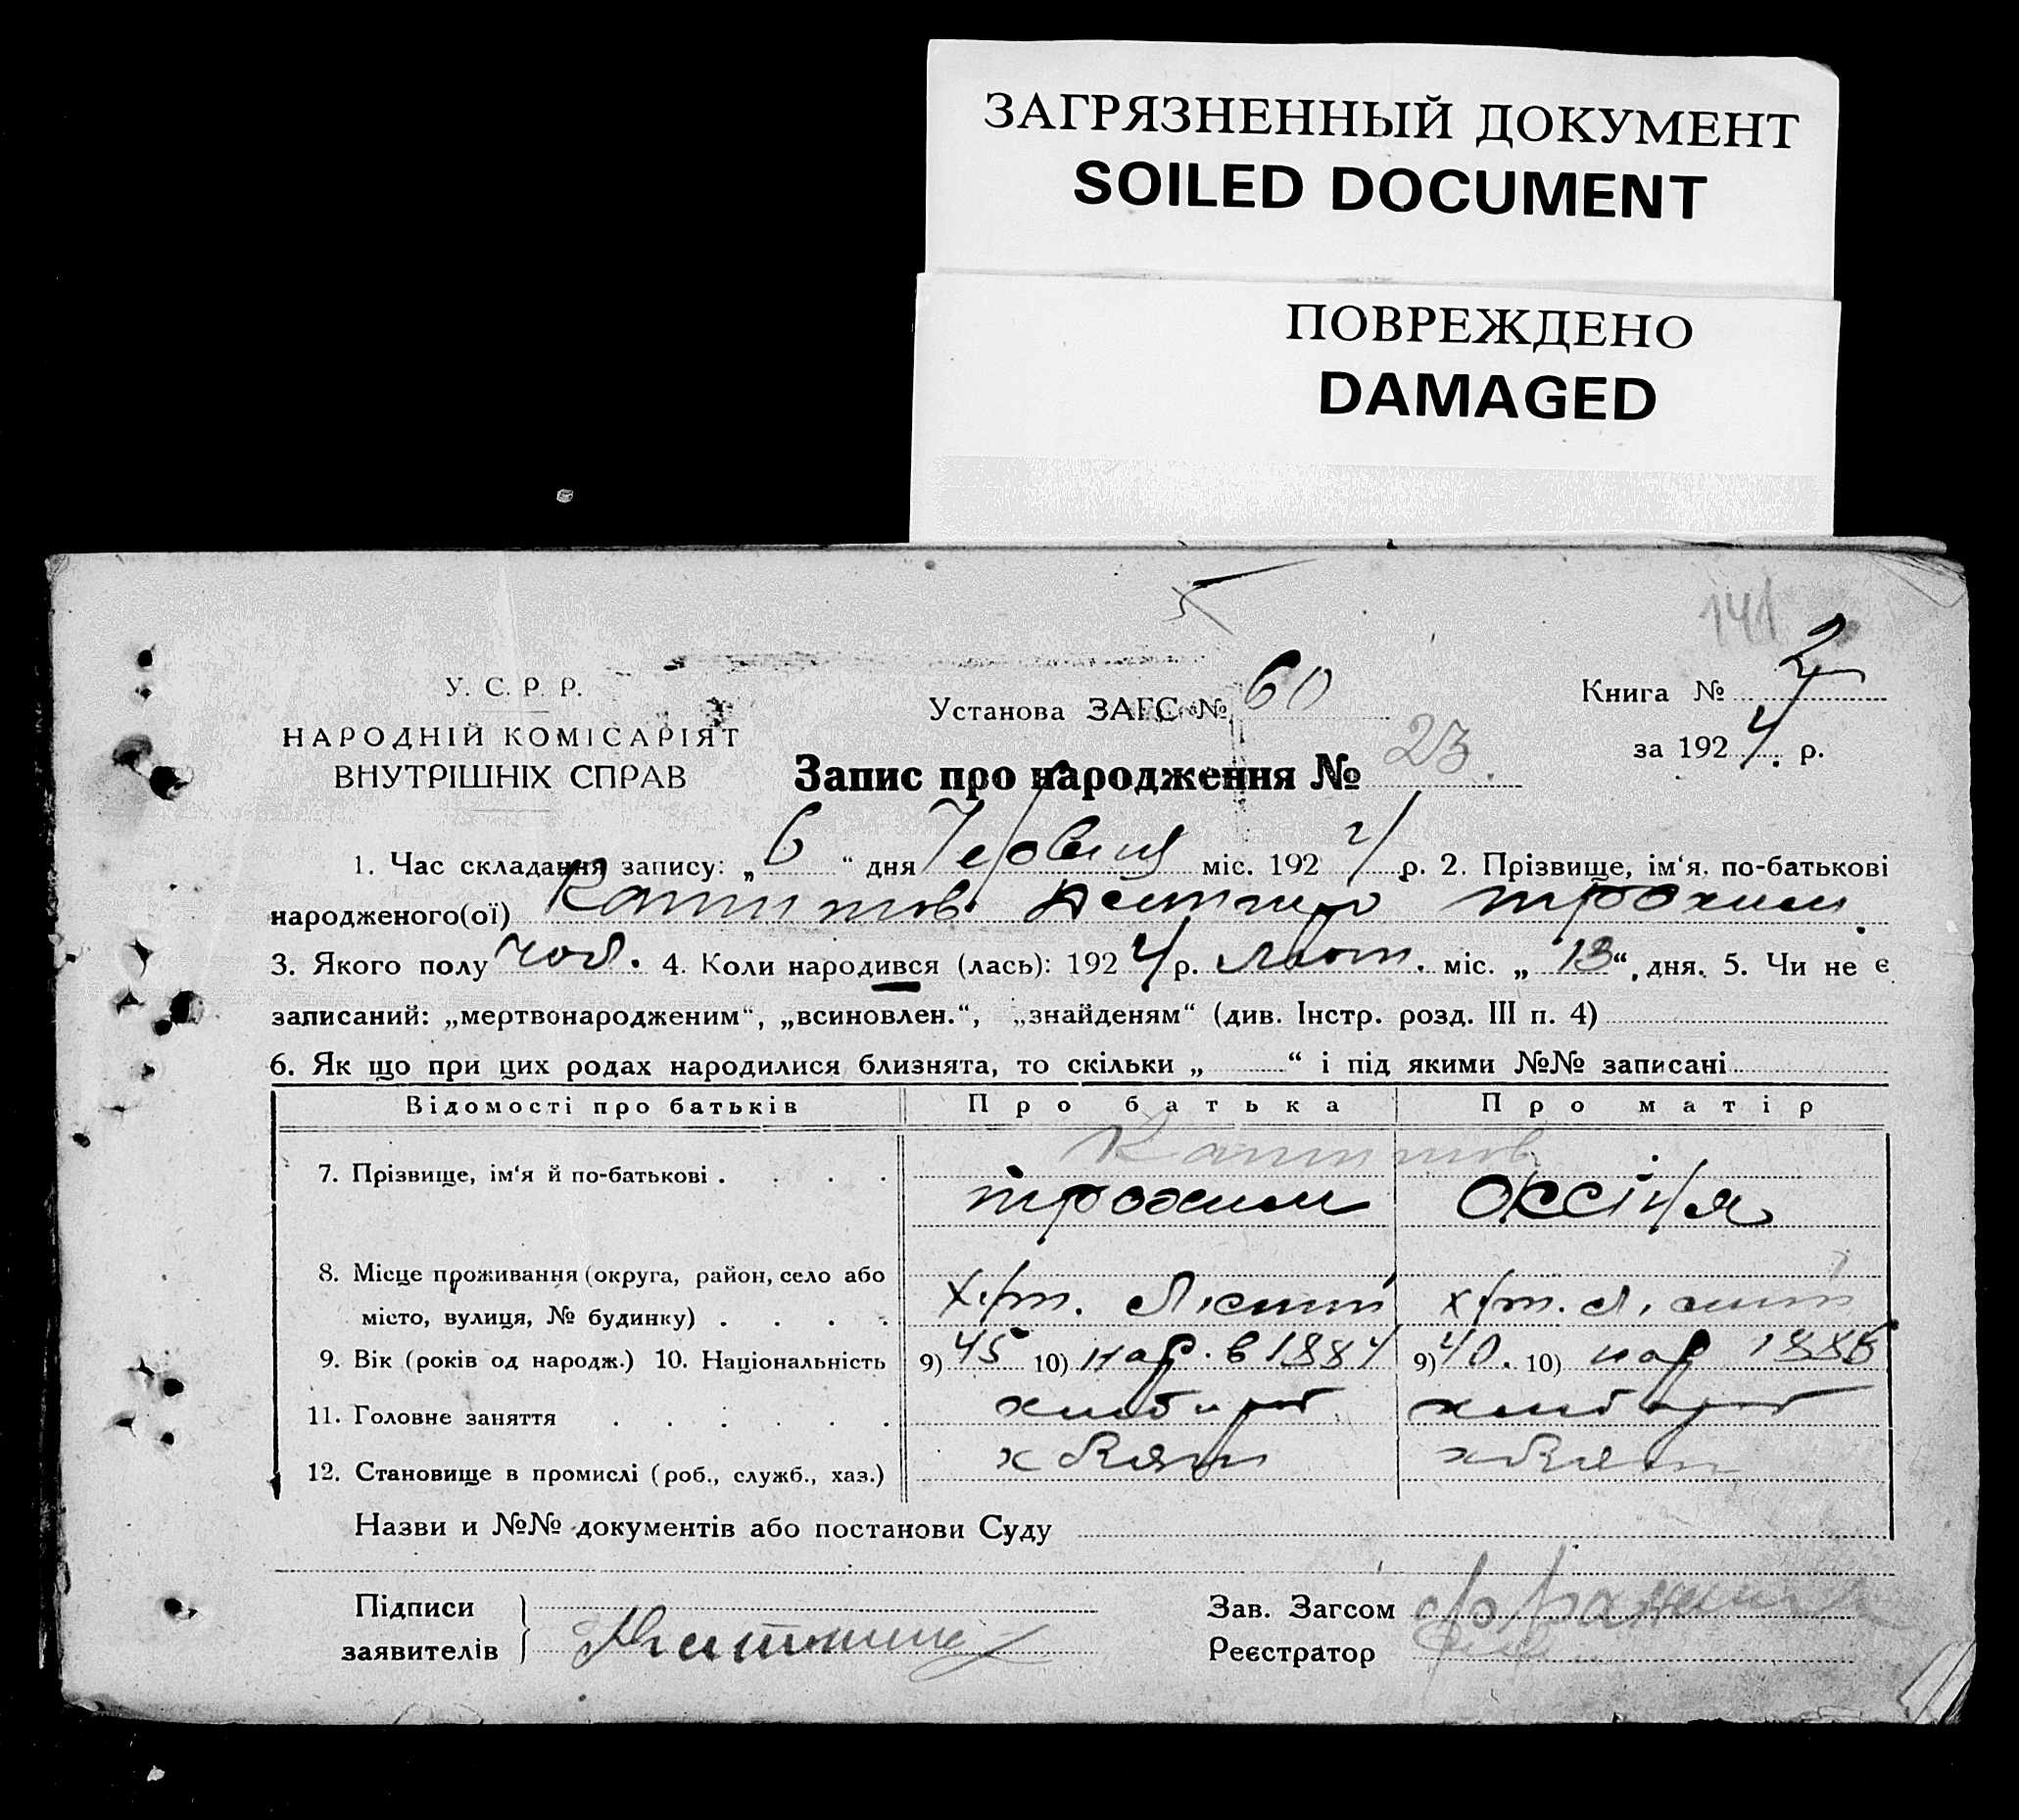 ЗАГРЯЗНЕННЫЙ ДОКУМЕНТ
SOILED DOCUMENT
ПОВРЕЖДЕНО
DAMAGED
141
У. С. Р. Р.
НАРОДНІЙ КОМІСАРІЯТ
ВНУТРІШНІХ СПРАВ
Установа ЗАГС № 60
Книга № 2
за 1924 р.
Запис про народження № 23.
1. Час складання запису: „6“ дня Червня міс. 1924 р. 2. Прізвище, ім‘я, по-батькові
народженого(ої) Дмитро Трохим
3. Якого полу чол. 4. Коли народився (лась): 1924 р. Лют. міс. „13“, дня. 5. Чи не є
записаний: „мертвонародженим“, „всиновлен.“, „знайденям“ (див. Інстр. розд. III п. 4)
6. Як що при цих родах народилися близнята, то скільки „ “ і під якими №№ записані
Відомості про батьків Про батька Про матір
7. Прізвище, ім‘я й по-батькові . . . .
Трохим Оксінья
8. Місце проживання (округа, район, село або
місто, вулиця, № будинку) . . . . Хут. Хут.
9. Вік (років од народж.) 10. Національність 9) 45 10) нар. в 1884 9) 40. 10) нар 1886
11. Головне заняття . . . . . . хлібороб хлібороб
12. Становище в промислі (роб., служб., хаз.) хозяин
Назви и №№ документів або постанови Суду
Підписи
заявителів
Зав. Загсом
Реєстратор